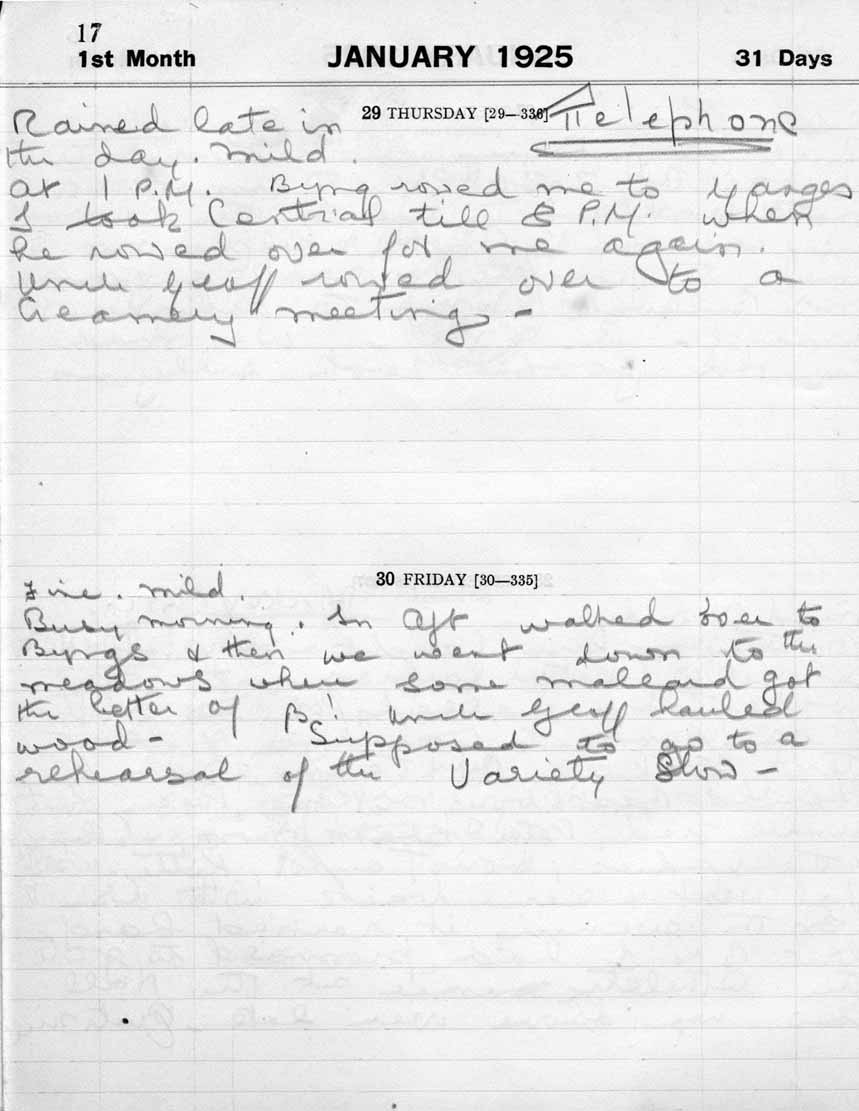 17
1st Month JANUARY 1925 31 Days
29 THURSDAY [29—336] Telephone
Rained late in
the day. Mild.
At 1 P.M. Byng rowed me to Ganges
I took Central till 8 P.M. when
he rowed over for me again.
Uncle Geoff rowed over to a
Creamery meeting -
30 FRIDAY [30—335]
Fine. Mild.
Busy morning. In Aft walked over to
Byngs & then we went down to the
meadows where some mallard got
the better of B! Uncle Geoff hauled
wood - Supposed to go to a
rehearsal of the Variety Show -